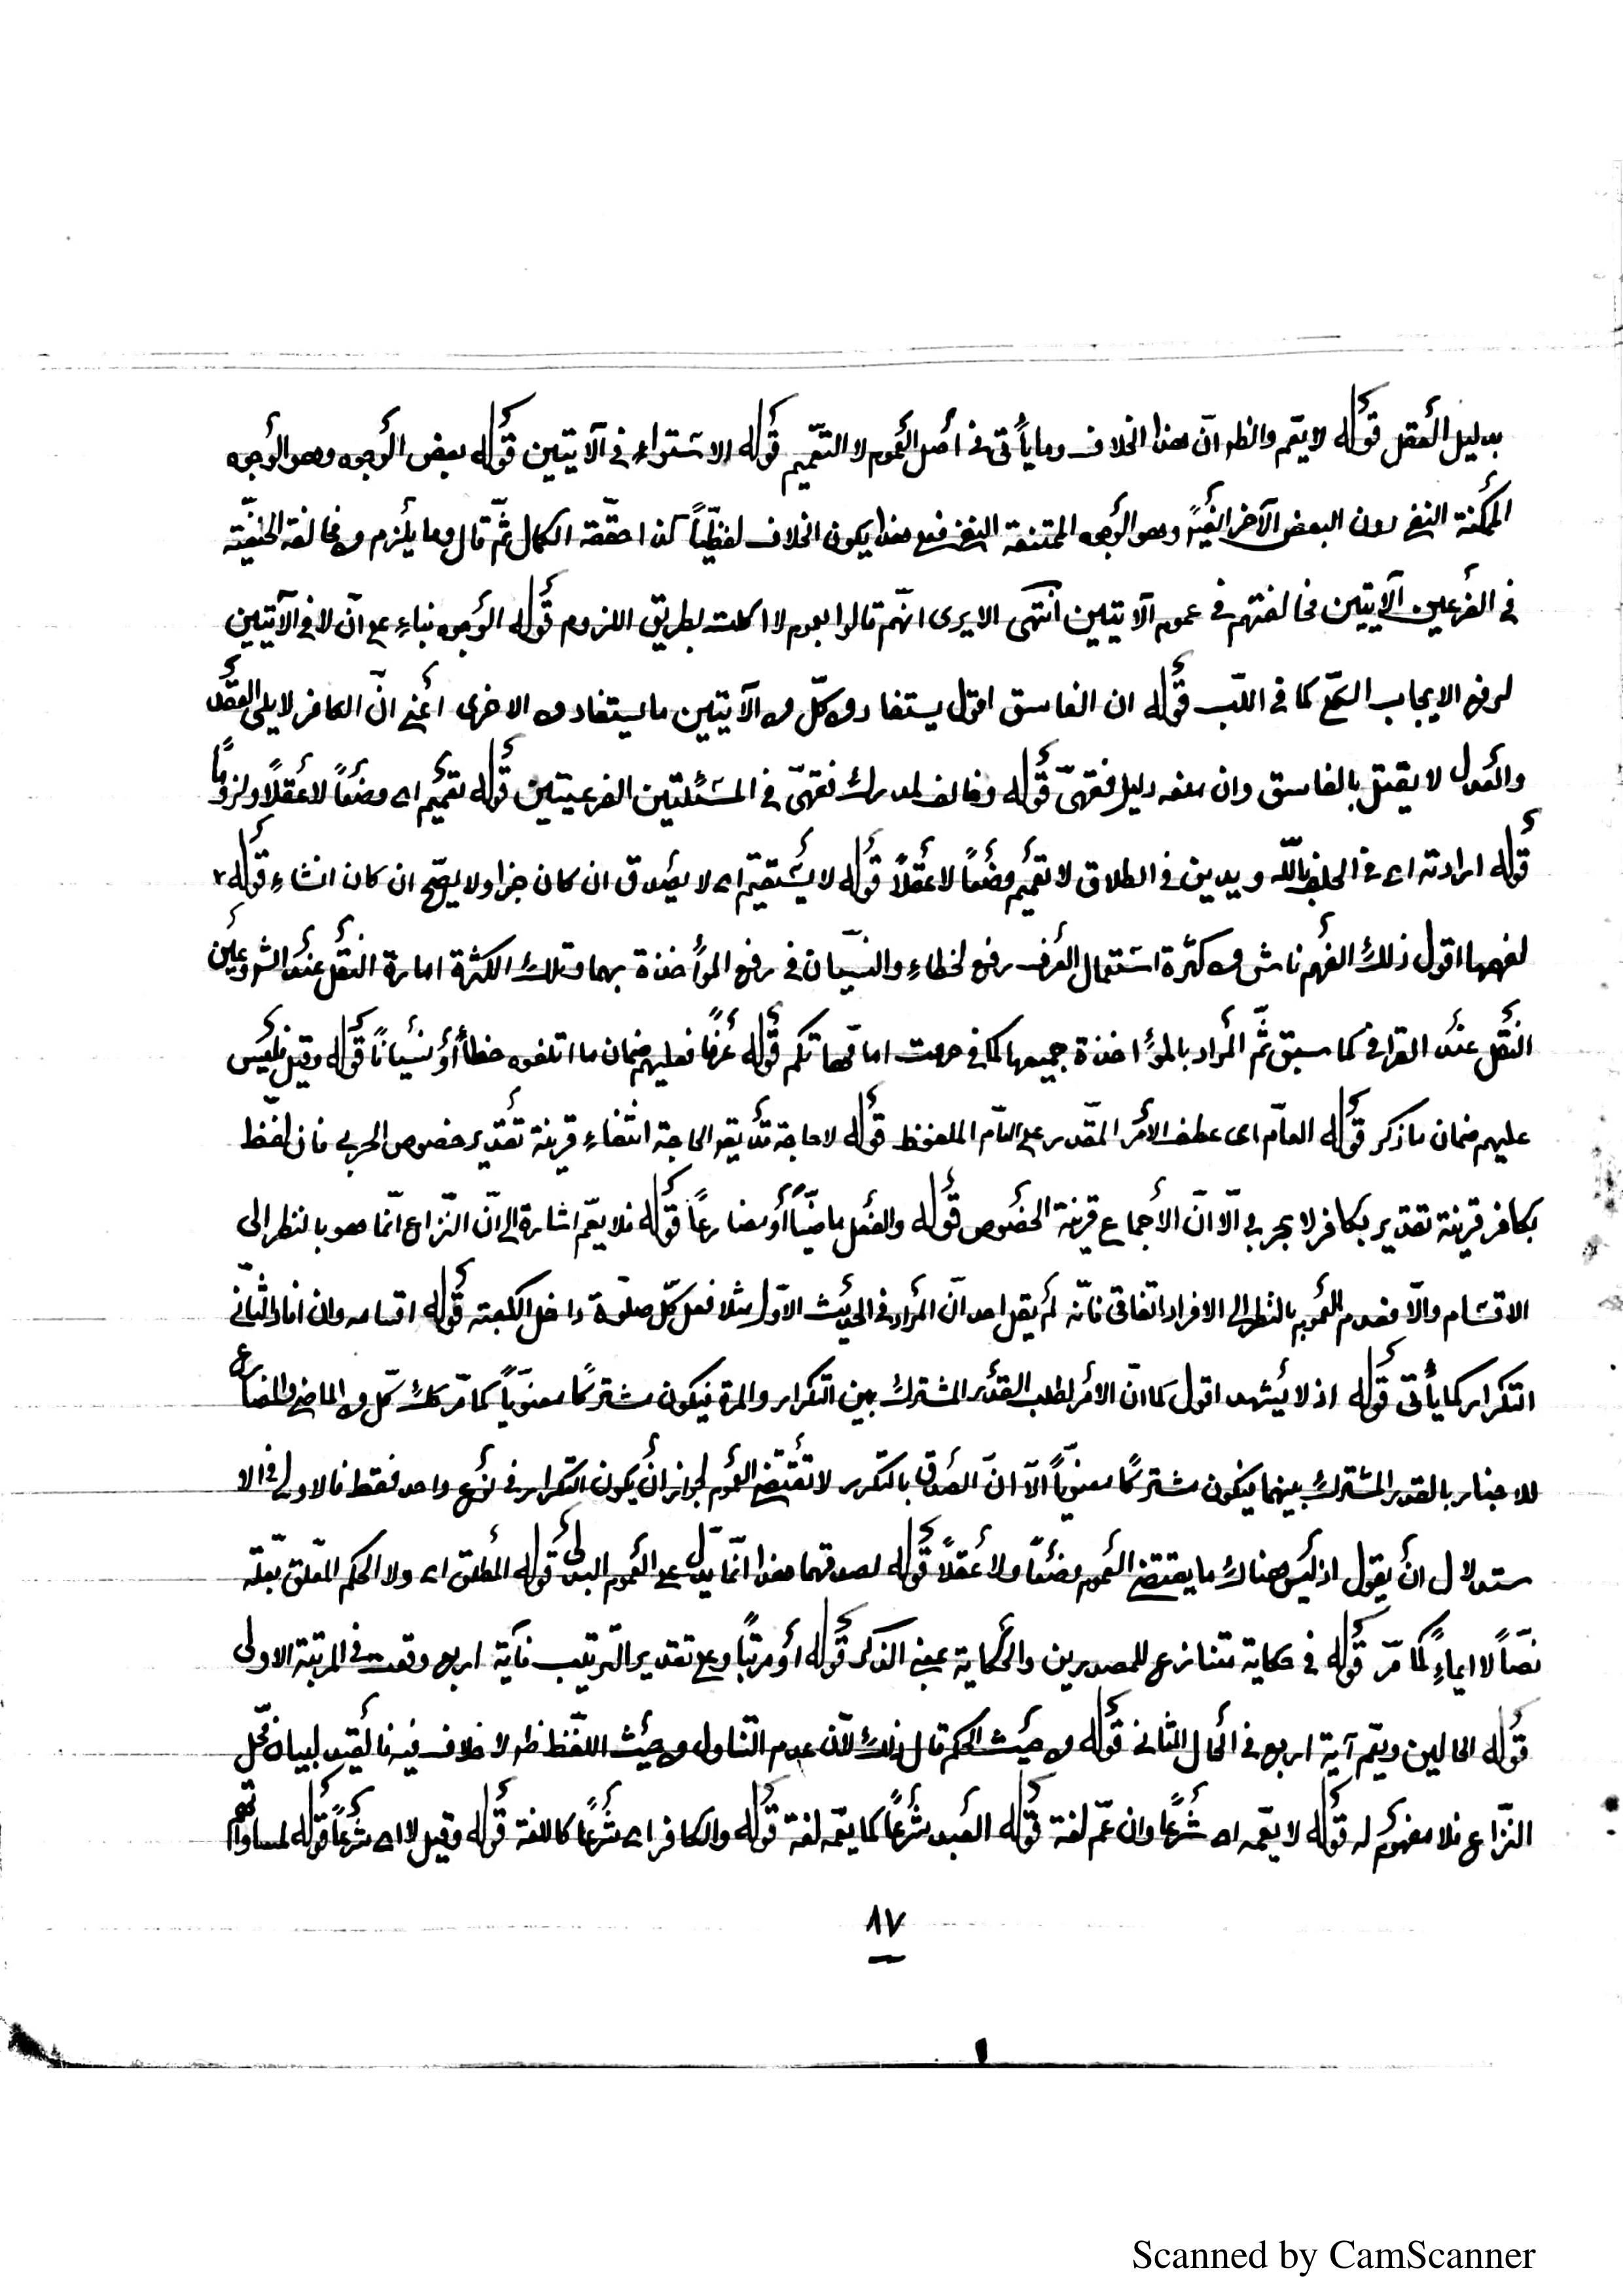 بدليل العقل قوله لا يعم والظ ان هذا الخلاف وما يأتى فى أصل العموم لا التعميم قوله الاستواء فى الآيتين قوله بعض الوجوه وهو الوجوه
الممكنة النفى دون البعض الآخر وهو الوجوه الممتنعة النفى فعلى هذا يكون الخلاف لفظيّاً كذا حققه الكمال ثمّ قال وما يلزم من مخالفة الحنفيّة
فى الفرعين الآتيين مخالفتهم فى عموم الآيتين انتهى الا يرى انّهم قالوا بعموم لا اكلت بطريق اللزوم قوله الوجوه بناءً على انّ لا فى الآيتين
لرفع الايجاب الكلى كما فى اللب قوله ان الفاسق اقول يستفاد من كلّ من الآيتين ما يستفاد من الاخرى أعنى انّ الكافر لا يلى العقد
والعدل لا يقتل بالفاسق وان منعه دليل فقهىّ قوله وخالف لمدرك فقهىّ فى المسئلتين الفرعيتين قوله تعميم اى وضعاً لا عقلاً ولزوماً
قوله ارادته اى فى الحلف بالله ويدين فى الطلاق لا تعميم وضعاً لا عقلاً قوله لا يستقيم اى لا يصدق ان كان خبرا ولا يصح ان كان انشاء قوله
لفهمها اقول ذلك الفهم ناش من كثرة استعمال العرف رفع الخطاء والنسيان فى رفع المؤاخذة بهما وتلك الكثرة امارة النقل عند
النقل عند القرافى كما سبق ثمّ المراد بالمؤاخذة جميعها كما فى حرمت امهاتكم قوله عرفاً فعليهم ضمان ما اتلفوه خطأ أو نسياناً قوله وقيل فليس
عليهم ضمان ما ذكر قوله العامّ اى عطف الأمر المقدر على العام الملفوظ قوله لا حاجة الحاجة انتفاء قرينة تقدير خصوص الحربى فان لفظ
بكافر قرينة تقدير بكافر لا بحربى الّا انّ الأجماع قرينة الخصوص قوله والفعل ماضيّاً أو مضارعاً قوله فلا يعمّ اشارة الى انّ النزاع انّما هو بالنظر الى
الاقسام والّا فعدم العموم بالنظر الى الافراد اتفاقى فانّه لم يقل احد انّ المراد فى الحديث الأوّل مثلا فعل كلّ صلوة داخل الكعبة قوله اقسامه وان افاد الثانى
التكرار كما يأتى قوله اذ لا يشهد اقول كما انّ الأمر لطلب القدر المشترك بين التكرار والمرة فيكون مشتركاً معنويّاً كما مرّ كك كلّ من الماضى والمضارع
للاخبار بالقدر المشترك بينهما فيكون مشتركاً معنويّاً الّا انّ الصدق بالتكرر لا تقتضى العموم لجواز أن يكون التكرار فى نوع واحد فقط فالاولى فى الا
ستدلال أن يقول اذ ليس هناك ما يقتضى العموم وضعاً ولا عقلاً قوله لصدقهما هذا انّما يدلّ على العموم البدلى قوله المطلق اى ولا الحكم المعلق بعلّة
نصّاً لا ايماءً كما مرّ قوله فى حكاية تتنازع للمصدرين والحكاية بمعنى الذكر قوله أو مرتباً وعلى تقدير الترتيب فآية اربع وقعت فى المرتبة الاولى
قوله الحالين ويتم آية اربع فى الحال الثانى قوله من حيث الحكم قال ذلك لأن عدم التناول من حيث اللفظ ظ لا خلاف فيه فالقيد لبيان محل
النزاع فلا مفهوم له قوله لا يعمّه اى شرعاً وان عمّ لغة قوله العبد شرعاً كما يعمّه لغة قوله والكافر اى شرعاً كاللغة قوله وقيل لا اى شرعاً قوله لمساواتهم
٨٧
Scanned by CamScanner